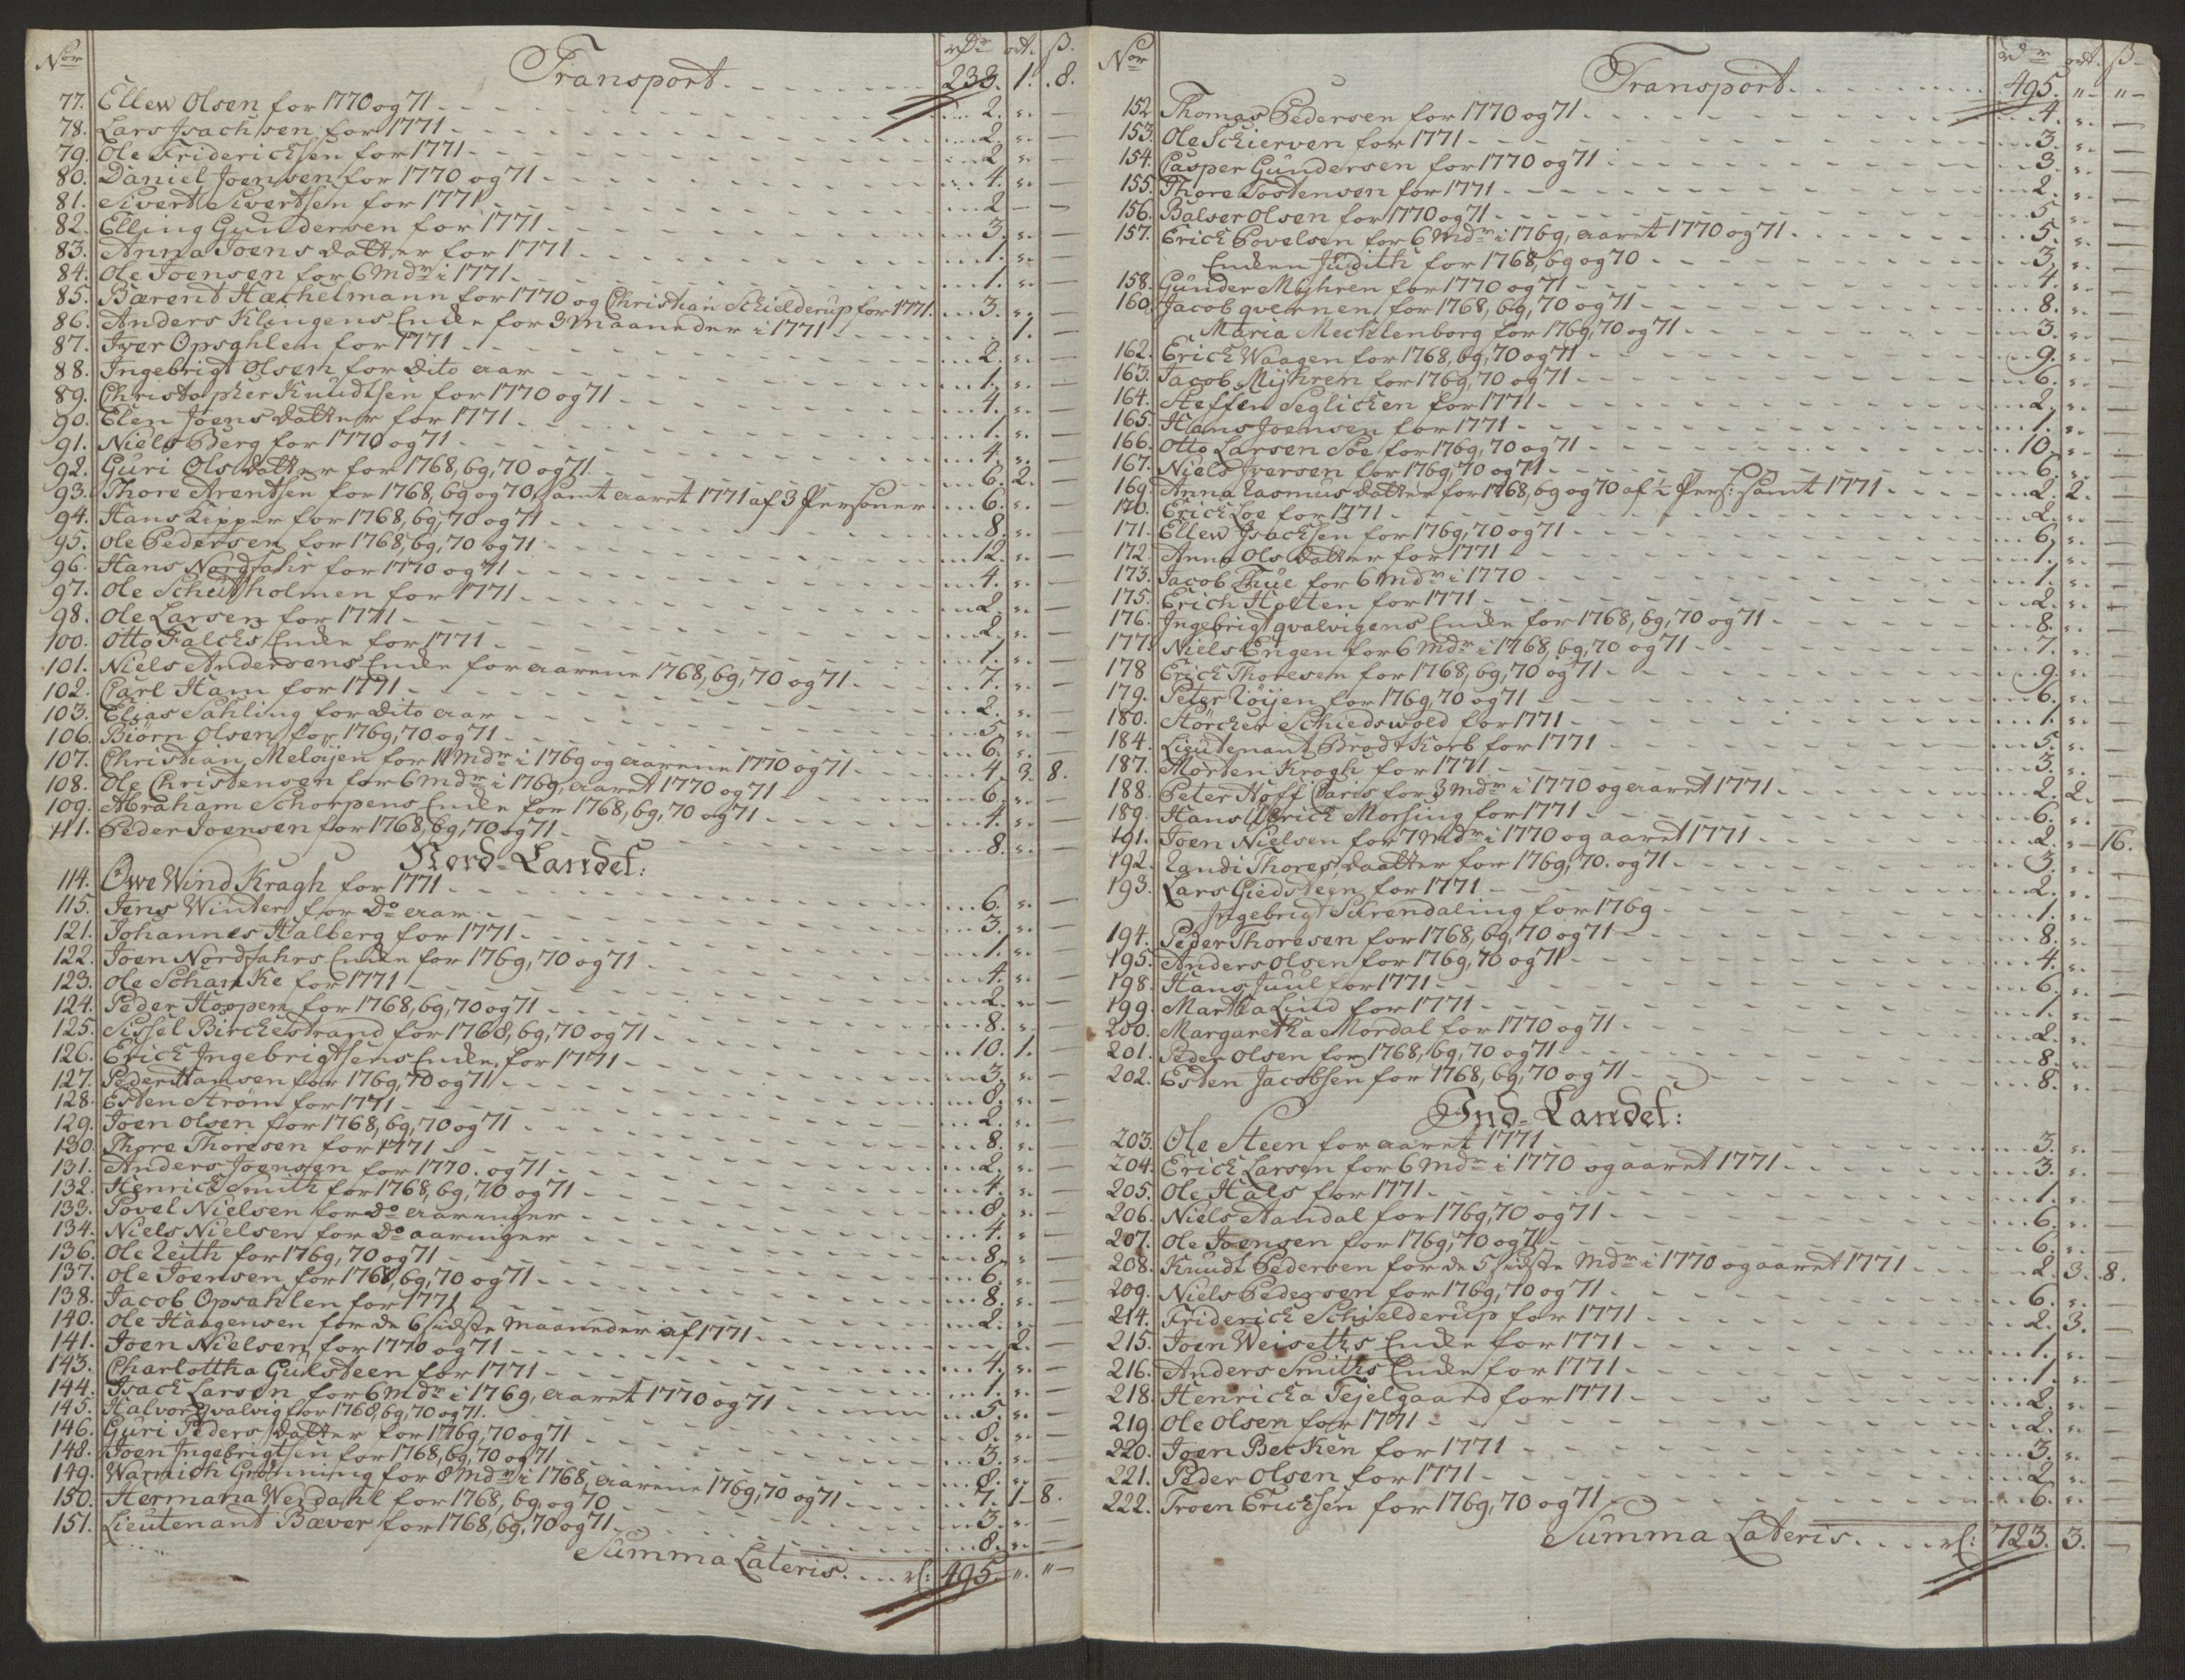 Nor rdr ort. ß.
Transport 238. 1. 8.
77. Ellew Olsen for 1770 og 71 2. ". —
78. Lars Isachsen for 1771 2 ". —
79. Ole Friderichsen for 1771 2 ". —
80. Daniel Joensen for 1770 og 71 4. ". —
81. Sivert Sivertsen for 1771 2 — —
82. Elling Gundersen for 1771 3. ". —
83. Anna Joens datter for 1771 1. ". —
84. Ole Joensen for 6 Mdr i 1771 1. ". —
85. Bærent Hachelmann for 1770 og Christian Schielderup for 1771. 3. ". —
86. Anders Klingens Encke for 3 Maaneder i 1771 1. —
87. Iver Opsahlen for 1771 2. ". —
88. Ingebrigt Olsen for dito aar 1. ". —
89. Christopher Knudtsen for 1770 og 71 4. ". —
90. Elen Joens datter for 1771 1. ". —
91. Niels Berg for 1770 og 71 4. ". —
92. Guri Ols datter for 1768, 69, 70 og 71 6. 2. —
93. Thore Arentsen for 1768, 69 og 70, samt aaret 1771 af 3 Personer 6. ". —
94. Hans Kipper for 1768, 69, 70 og 71 8. ". —
95. Ole Pedersen for 1768, 69, 70 og 71 12. ". —
96. Hans Nordfahr for 1770 og 71 4. ". —
97. Ole Schutholmen for 1771 2. ". —
98. Ole Larsen for 1771 2. ". —
100. Otto Falchs Encke for 1771 1. ". —
101. Niels Andersens Encke for aarene 1768, 69, 70 og 71 7. ". —
102. Carl Ham for 1771 2. ". —
103. Elias Sahling for dito aar 5. ". —
106. Biørn Olsen for 1769, 70 og 71 6. ". —
107. Christian Meløijen for 11 Mdr i 1769 og aarene 1770 og 71 4. 3. 8.
108. Ole Christensen for 6 Mdr i 1769, aaret 1770 og 71 6. ". —
109. Abraham Schorpens Encke for 1768, 69, 70 og 71 4. ". —
111. Peder Joensen for 1768, 69, 70 og 71 8. ". —
Nord-Landet:
114. Owe Wind Kragh for 1771 6. ". —
115. Jens Winter for do aar 3. ". —
121. Johannes Halberg for 1771 1. ". —
122. Joen Nordfahrs Encke for 1769, 70 og 71 4. ". —
123. Ole Schanke for 1771 2. ". —
124. Peder Hoppen for 1768, 69, 70 og 71 8. ". —
125. Sissel Birchestrand for 1768, 69, 70 og 71 10. 1. —
126. Erick Ingebrigtsens Encke for 1771 3. ". —
127. Peder Hansen for 1769, 70 og 71 8. ". —
128. Esten Strøm for 1771 2. ". —
129. Joen Olsen for 1768, 69, 70 og 71 8. ". —
130. Thore Thoresen for 1771 2. ". —
131. Anders Joensen for 1770. og 71 4. ". —
132. Henrick Smith for 1768, 69, 70 og 71 8. ". —
133. Povel Nielsen for do aaringer 4. ". —
134. Niels Nielsen for do aaringer 8. ". —
136. Ole Leith for 1769, 70 og 71 6. ". —
137. Ole Joensen for 1768, 69, 70 og 71 8. ". —
138. Jacob Opsahlen for 1771 2. ". —
140. Ole Haagensen for de 6 sidste Maaneder af 1771 2. —
141. Joen Nielsen for 1770 og 71 4. ". —
143. Charlottha Gulsteen for 1771 1. ". —
144. Isach Larsen for 6 Mdr i 1769, aaret 1770 og 71 5. ". —
145. Halvor Qvalvig for 1768, 69, 70 og 71. 8. ". —
146. Guri Peders datter for 1769, 70 og 71 3. ". —
148. Joen Ingebrigtsen for 1768, 69, 70 og 71 8. ". —
149. Warnich Grønning for 8 Mdr i 1768, aarene 1769, 70 og 71 7. 1. 8.
150. Hermana Weidahl for 1768, 69, og 70 3. ". —
151. Lieutenant Bæver for 1768, 69, 70 og 71 8. ". —
Summa Lateris rd: 495. ". " —
Nor rdr ort. ß
Transport 495. " — " —
152. Thomas Pedersen for 1770 og 71 4. ". —
153. Ole Schierven for 1771 3. ". —
154. Casper Gundersen for 1770 og 71 3. ". —
155. Thore Tostensen for 1771 2. ". —
156. Balser Olsen for 1770 og 71 5. ". —
157. Erick Povelsen for 6 Mdr i 1769, aaret 1770 og 71 5. ". —
Encken Judith for 1768, 69 og 70 3. ". —
158. Gunder Myhren for 1770 og 71 4. ". —
160. Jacob Qvernen for 1768, 69, 70 og 71 8. ". —
Maria Mechlenborg for 1769, 70 og 71 3. ". —
162. Erick Waagen for 1768, 69, 70 og 71 9. ". —
163. Jacob Mijhren for 1769, 70 og 71 6. ". —
164. Steffen Seglicken for 1771 2. ". —
165. Hans Joensen for 1771 1. ". —
166. Otto Larsen Søe for 1769, 70 og 71 10. ". —
167. Niels Iversen for 1769, 70 og 71 6. ". —
169. Anna Rasmus datter for 1768, 69 og 70 af ½ Pers: samt 1771 2. 2. —
170. Erick Loe for 1771 2. ". —
171. Ellew Isachsen for 1769, 70 og 71 6. ". —
172. Anna Ols datter for 1771 1. ". —
173. Jacob Thue for 6 Mdr i 1770 1. ". —
175. Erich Holten for 1771 2. ". —
176. Ingebrigt Qvalvigens Encke for 1768, 69, 70 og 71 8. ". —
177. Niels Engen for 6 Mdr i 1768, 69, 70 og 71 7. ". —
178 Erick Thoresen for 1768, 69, 70 og 71 9. ". —
179. Peter Røijen for 1769, 70 og 71 6. ". —
180. Størcker Schiedswold for 1771 1. ". —
184. Lieutenant Brodtkorb for 1771 5. ". —
187. Morten Krogh for 1771 3. ". —
188. Peter Hoff Paris for 3 Mdr i 1770 og aaret 1771 2. 2. —
189. Hans Ulrick Morsing for 1771 6. ". —
191. Joen Nielsen for 7 Mdr i 1770 og aaret 1771 2. " — 16.
192. Randi Thores daatter for 1769, 70. og 71 3. ". —
193. Lars Giedsteen for 1771 2. ". —
Ingebrigt Surendaling for 1769 1. ". —
194. Peder Thoresen for 1768, 69, 70 og 71 8. ". —
195. Anders Olsen for 1769, 70 og 71 4. ". —
198. Hans Juul for 1771 6. ". —
199. Martha Lund for 1771 1. ". —
200. Margaretha Mordal for 1770 og 71 2. ". —
201. Peder Olsen for 1768, 69, 70 og 71 8. ". —
202. Esten Jacobsen for 1768, 69, 70 og 71 8. ". —
Ind-Landet:
203. Ole Steen for aaret 1771 3. ". —
204. Erick Larsen for 6 Mdr i 1770 og aaret 1771 3. ". —
205. Ole Hals for 1771 1. ". —
206. Niels Aandal for 1769, 70 og 71 6. ". —
207. Ole Joensen for 1769, 70 og 71 6. ". —
208. Knudt Pedersen for de 5 sidste Mdr i 1770 og aaret 1771 2. 3. 8.
209. Niels Pedersen for 1769, 70 og 71 6. ". —
214. Friderick Schielderup for 1771 2. 3. —
215. Joen Weiseths Encke for 1771 1. ". —
216. Anders Smiths Encke for 1771 1. ". —
218. Henricka Tejelgaard for 1771 2. ". —
219. Ole Olsen for 1771 2. ". —
220. Joen Becken for 1771 3. ". —
221. Peder Olsen for 1771 2. ". —
222. Troen Ericksen for 1769, 70 og 71 6. ". —
Summa Lateris rd: 723. 3. —